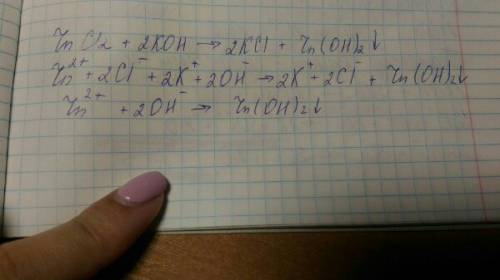 ZnCl₂ + 2KOH → 2KCl + Zn(OH)₂↓
Zn²⁺ + 2Cl⁻ + 2K⁺ + 2OH⁻ → 2K⁺ + 2Cl⁻ + Zn(OH)₂↓
Zn²⁺ + 2OH⁻ → Zn(OH)₂↓